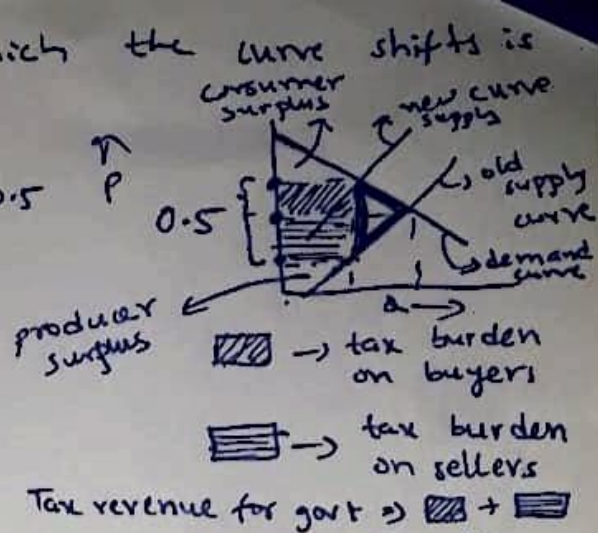 the curve shifts is
consumer
surplus
new curve
supply
P
0.5
old
supply
curve
demand
curve
Q
producer
surplus
→ tax burden
on buyers
→ tax burden
on sellers
Tax revenue for govt ⇒ +